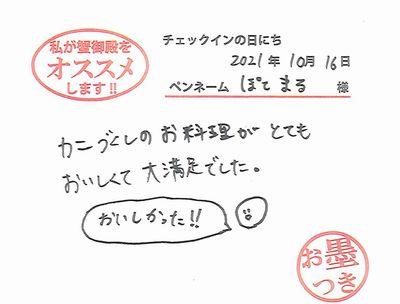 私が蟹御殿を
オススメ
します!!
チェックインの日にち
2021年 10月 16日
ペンネーム ぽてまる 様
カニづくしのお料理がとても
おいしくて大満足でした。
おいしかった!!
お墨
つき